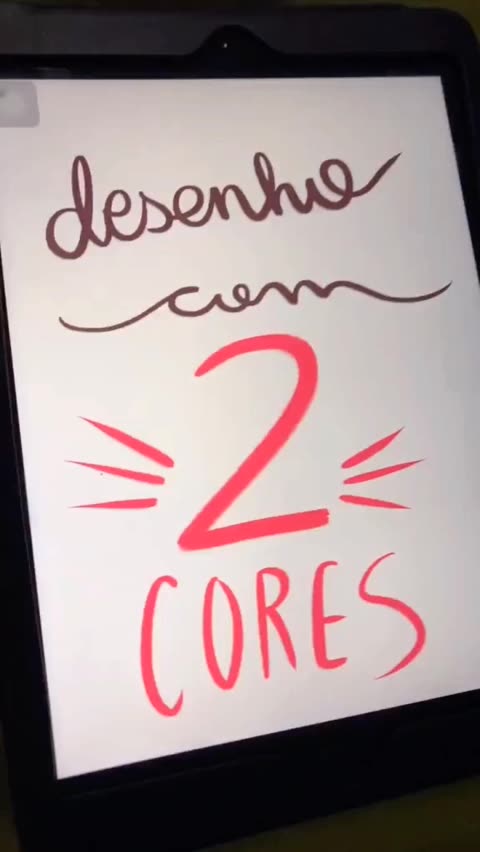 desenho
com
2
CORES